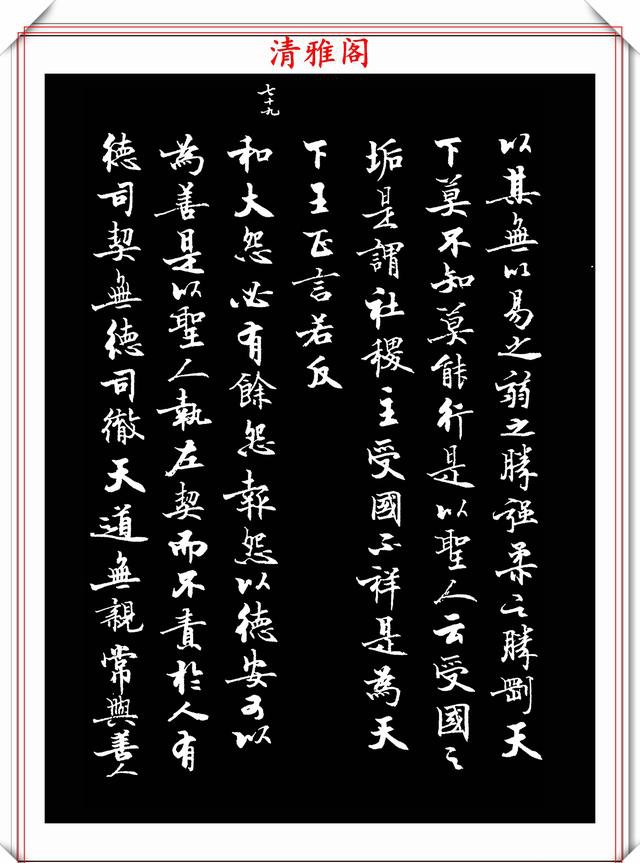 清雅阁
七十九
以其無以易之弱之勝强柔之勝剛天
下莫不知莫能行是以聖人云受國之
垢是謂社稷主受國不祥是為天
下王正言若反
和大怨必有餘怨報怨以德安可以
為善是以聖人執左契而不責於人有
德司契無德司徹天道無親常與善人